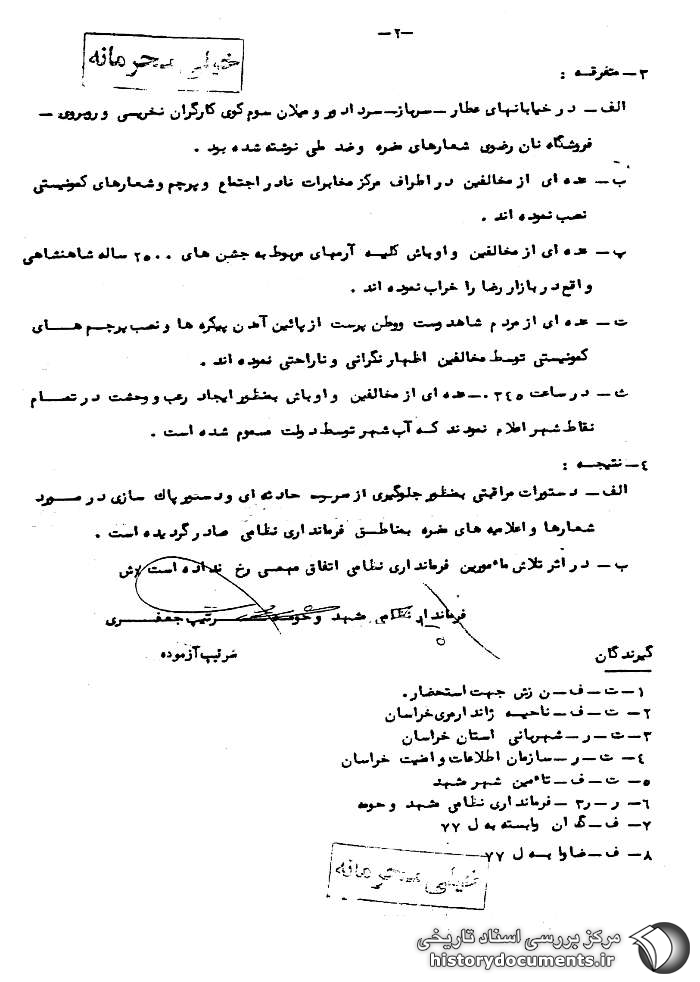 -۲-
خیلی محرمانه
۳- متفرقه :
الف- در خیابانهای عطار - سرباز - سردادور و میلان سوم کوی کارگران نخریسی و روبروی -
فروشگاه نان رضوی شعارهای مضره و ضد ملی نوشته شده بود .
ب- عده ای از مخالفین در اطراف مرکز مخابرات نادر اجتماع و پرچم و شعارهای کمونیستی
نصب نموده اند .
پ- عده ای از مخالفین و اوباش کلیه آرمهای مربوط به جشن های ۲۵۰۰ ساله شاهنشاهی
واقع در بازار رضا را خراب نموده اند .
ت- عده ای از مردم شاهدوست ووطن پرست از پائین آمدن پیکره ها و نصب پرچم های
کمونیستی توسط مخالفین اظهار نگرانی و ناراحتی نموده اند .
ث- در ساعت ۰۳۴۵ عده ای از مخالفین و اوباش بمنظور ایجاد رعب و وحشت در تمام
نقاط شهر اعلام نمودند که آب شهر توسط دولت مسموم شده است .
۴- نتیجه :
الف- دستورات مراقبتی بمنظور جلوگیری از هرگونه حادثه ای و دستور پاک سازی در مورد
شعارها و اعلامیه های مضره بمناطق فرمانداری نظامی صادر گردیده است .
ب- در اثر تلاش مأمورین فرمانداری نظامی اتفاق مهمی رخ نداده است
فرماندار نظامی مشهد و حومه سرتیپ جعفری
سرتیپ آزموده
گیرندگان
۱- ت - ف - ن زش جهت استحضار.
۲- ت - ف - ناحیه ژاندارمری خراسان
۳- ت - ر - شهربانی استان خراسان
۴- ت - ر - سازمان اطلاعات و امنیت خراسان
۵- ت - ف - تأمین شهر مشهد
۶- ر - ر۳ - فرمانداری نظامی مشهد و حومه
۷- ف - گدان وابسته به ل ۷۷
۸- ف - ضاوا به ل ۷۷
خیلی محرمانه
مرکز بررسی اسناد تاریخی
historydocuments.ir